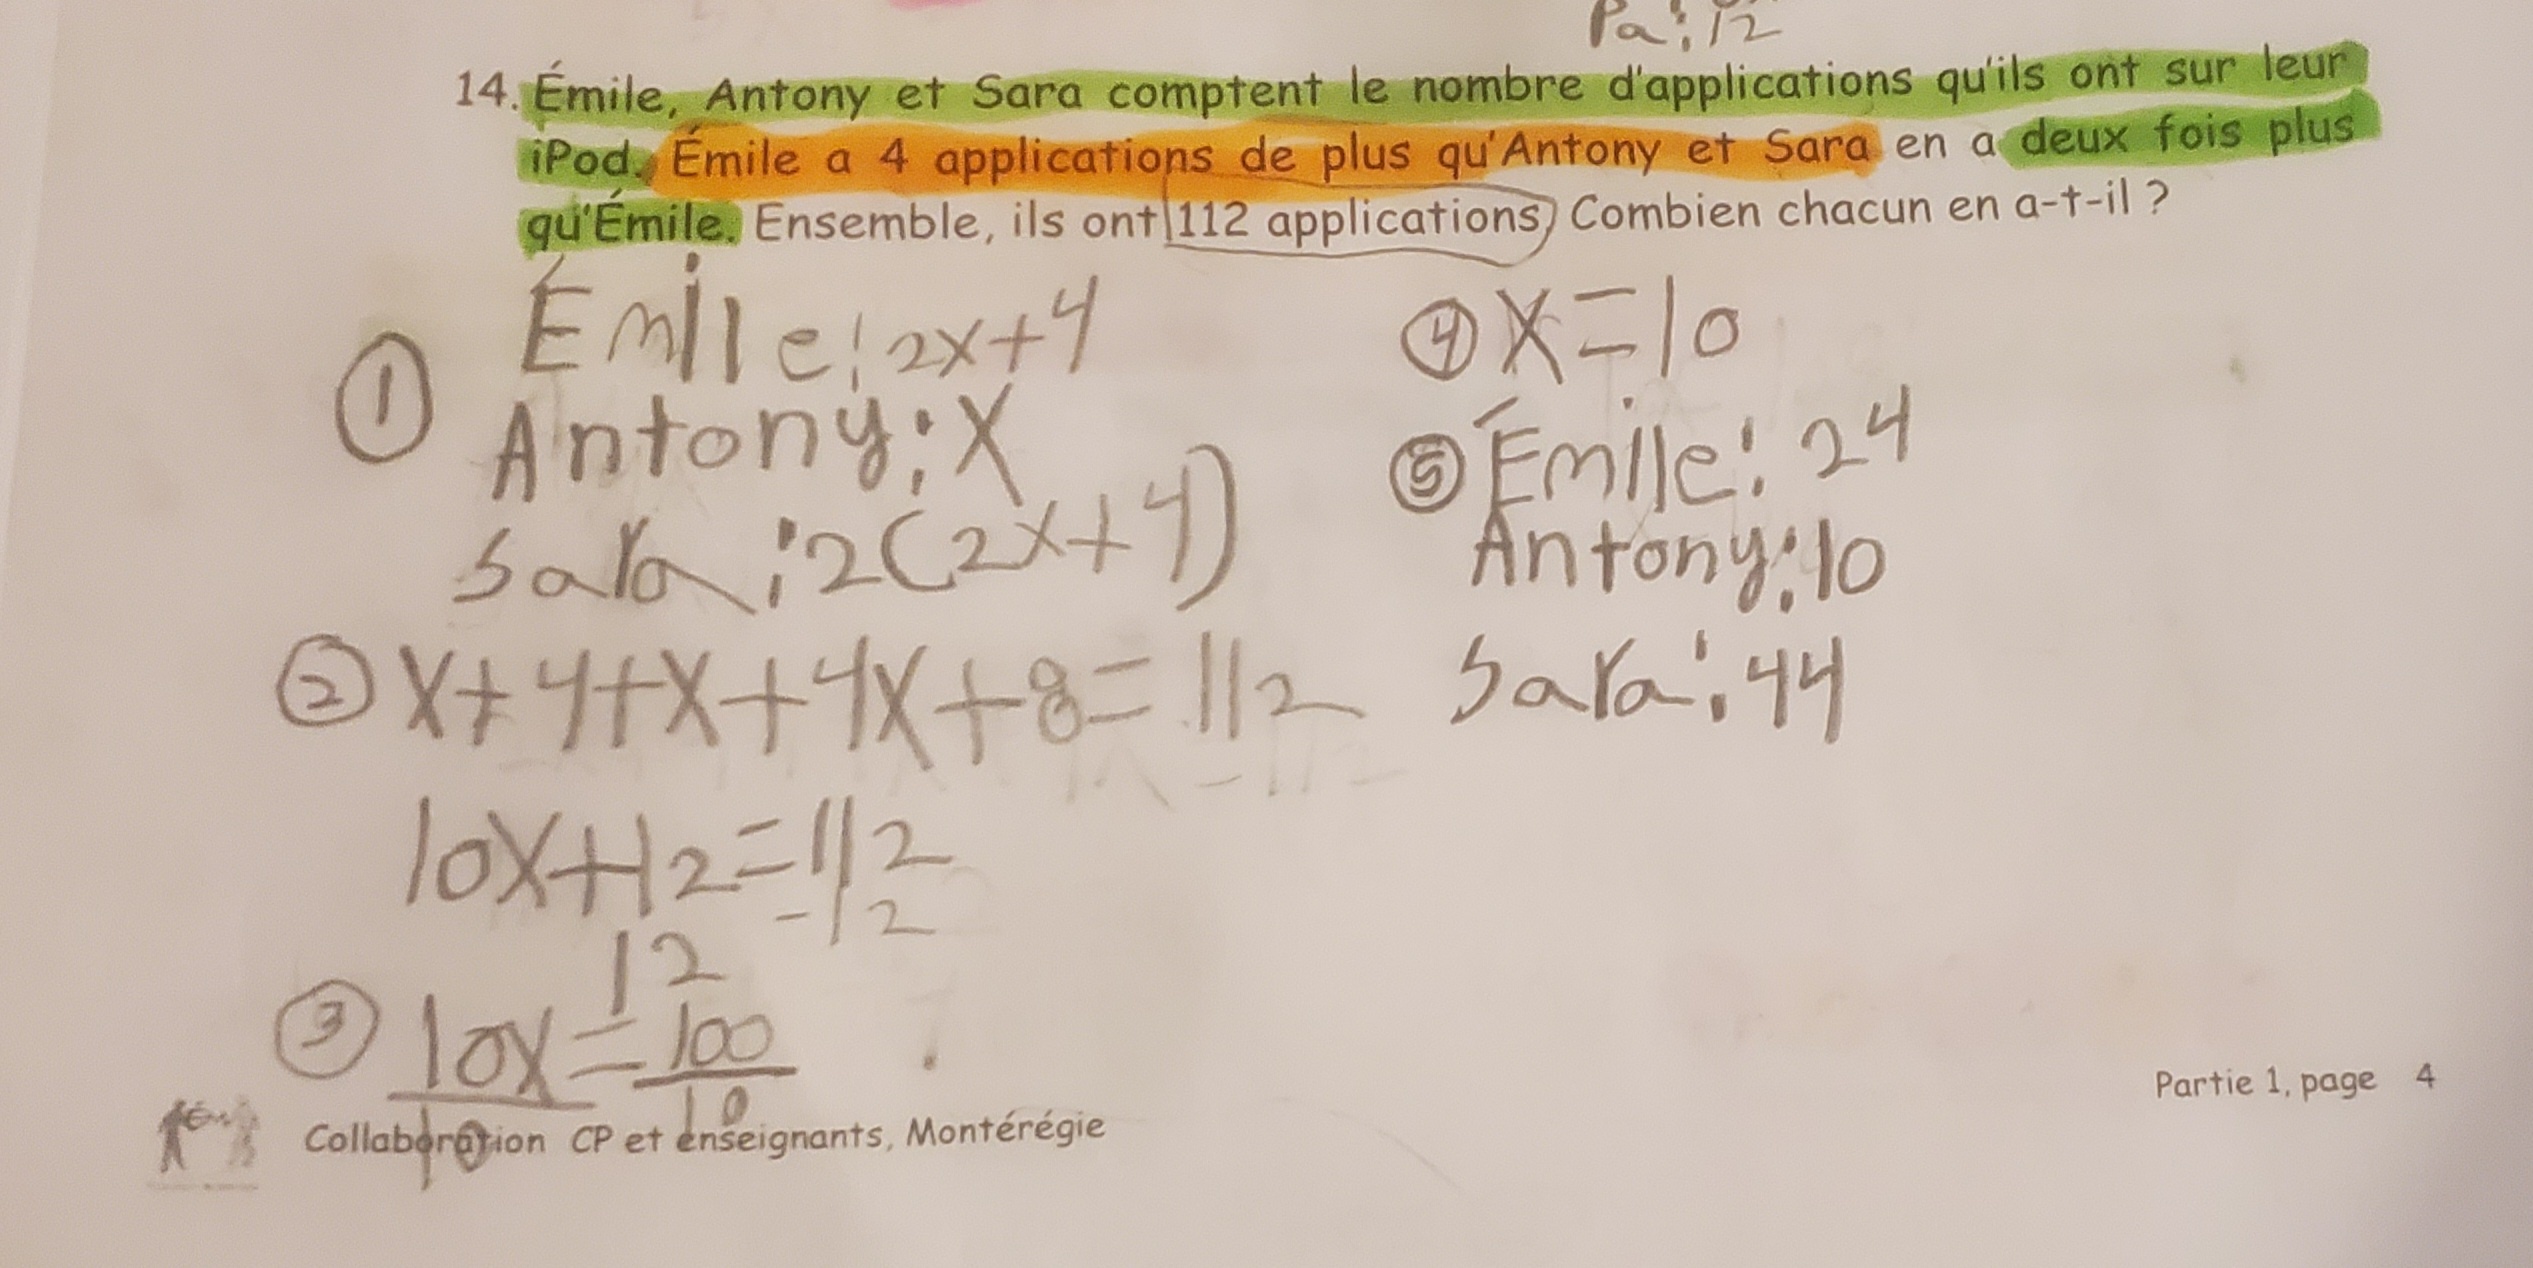 Pa: 12
14. Émile, Antony et Sara comptent le nombre d'applications qu'ils ont sur leur
iPod. Émile a 4 applications de plus qu'Antony et Sara en a deux fois plus
qu'Émile. Ensemble, ils ont 112 applications. Combien chacun en a-t-il ?
① Émile: 2x+4
Antony: x
Sara: 2(2x+4)
② x+4+x+4x+8=112
10x+12=112
-12
12
③ 10x=100
10 10
④ x=10
⑤ Émile: 24
Antony: 10
Sara: 44
Collaboration CP et enseignants, Montérégie
Partie 1, page 4